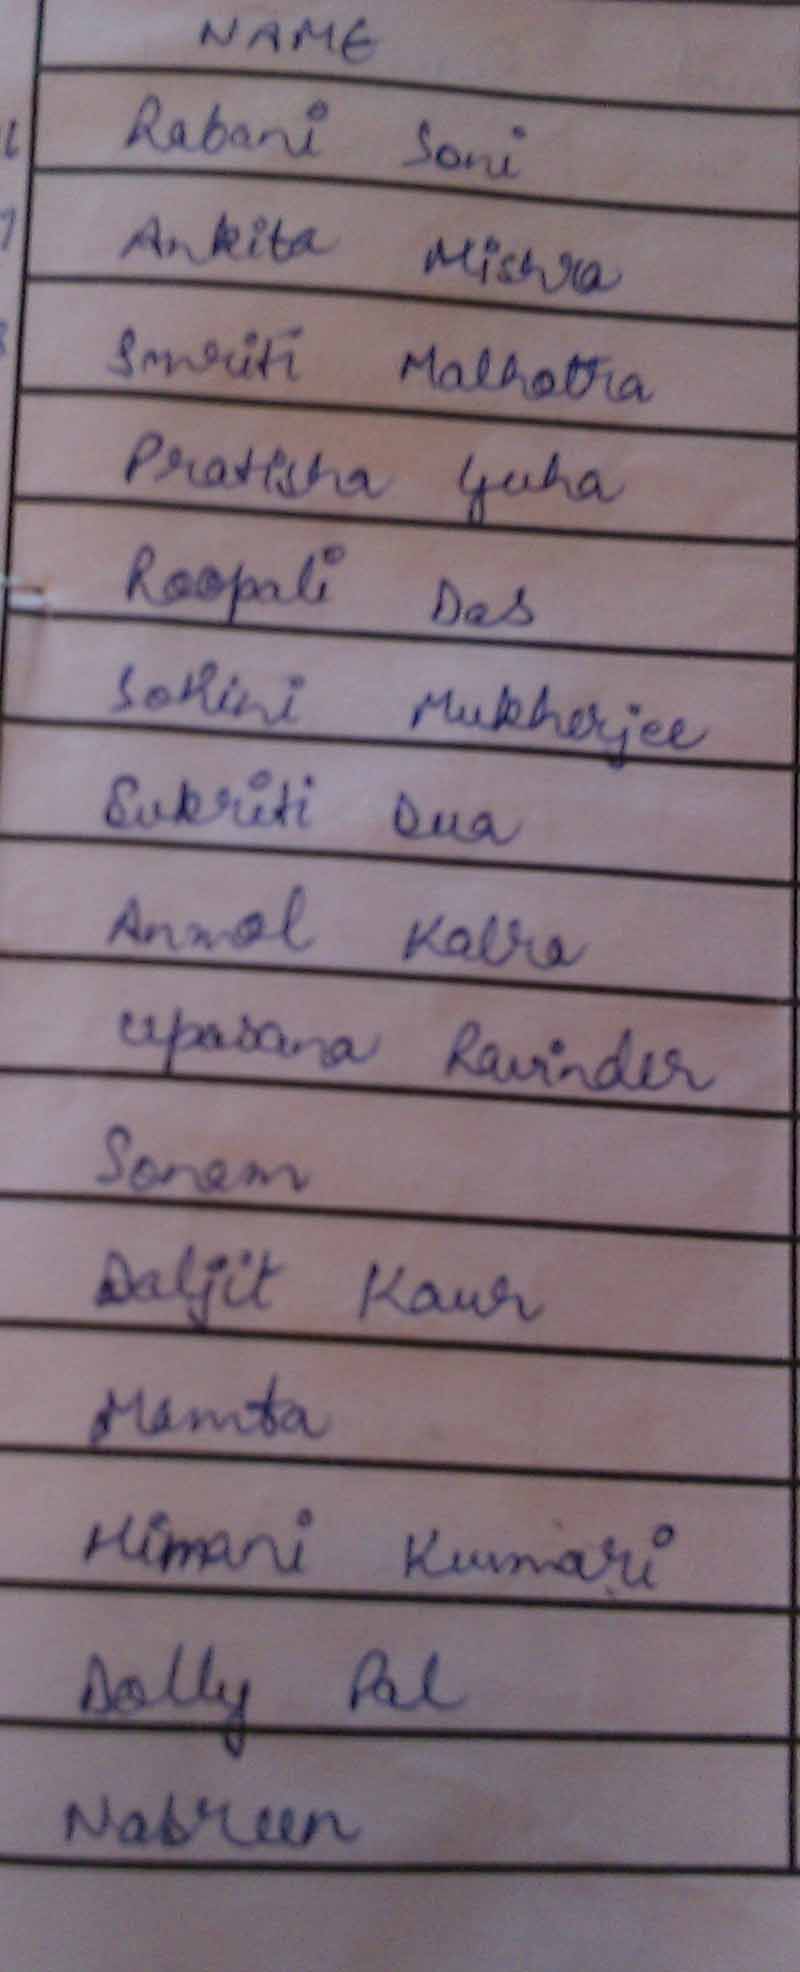 NAME
Rabani Soni
Ankita Mishra
Smriti Malhotra
Pratisha Guha
Roopali Das
Sohini Mukherjee
Sukriti Dua
Anmol Kalra
Upasana Ravinder
Sonam
Daljit Kaur
Mamta
Himani Kumari
Dolly Pal
Nasreen